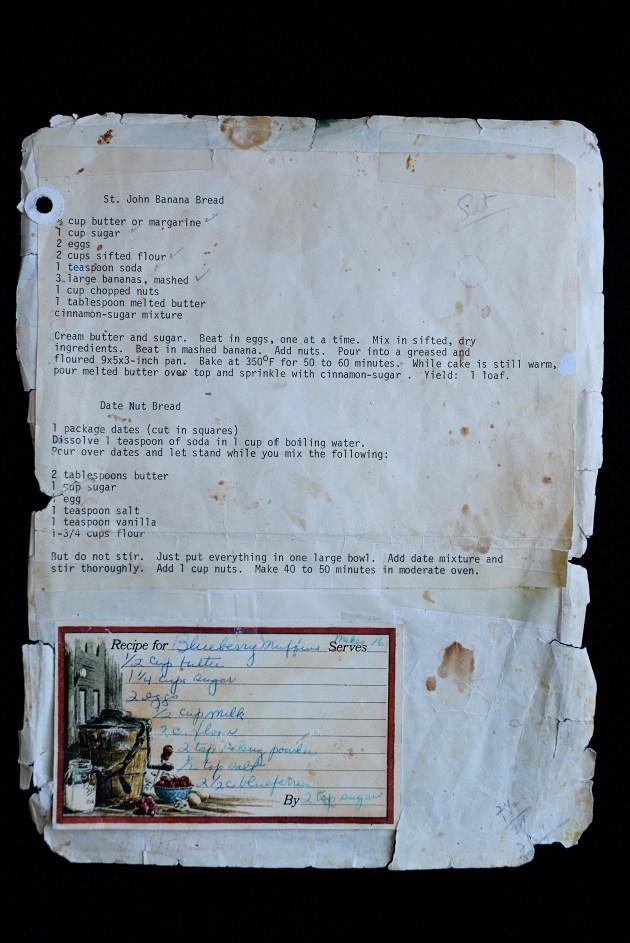 St. John Banana Bread
½ cup butter or margarine
1 cup sugar
2 eggs
2 cups sifted flour
1 teaspoon soda
3 large bananas, mashed
1 cup chopped nuts
1 tablespoon melted butter
cinnamon-sugar mixture
Cream butter and sugar. Beat in eggs, one at a time. Mix in sifted, dry
ingredients. Beat in mashed banana. Add nuts. Pour into a greased and
floured 9x5x3-inch pan. Bake at 350°F for 50 to 60 minutes. While cake is still warm,
pour melted butter over top and sprinkle with cinnamon-sugar . Yield: 1 loaf.
Date Nut Bread
1 package dates (cut in squares)
Dissolve 1 teaspoon of soda in 1 cup of boiling water.
Pour over dates and let stand while you mix the following:
2 tablespoons butter
1 cup sugar
1 egg
1 teaspoon salt
1 teaspoon vanilla
1-3/4 cups flour
But do not stir. Just put everything in one large bowl. Add date mixture and
stir thoroughly. Add 1 cup nuts. Make 40 to 50 minutes in moderate oven.
Recipe for Blueberry Muffins Makes 16 Serves
1/2 cup butter
1 1/4 cups sugar
2 eggs
1/2 cup milk
2 c flour
2 tsp baking powder
1/2 tsp salt
2 1/2 c blueberries
By 2 tsp sugar